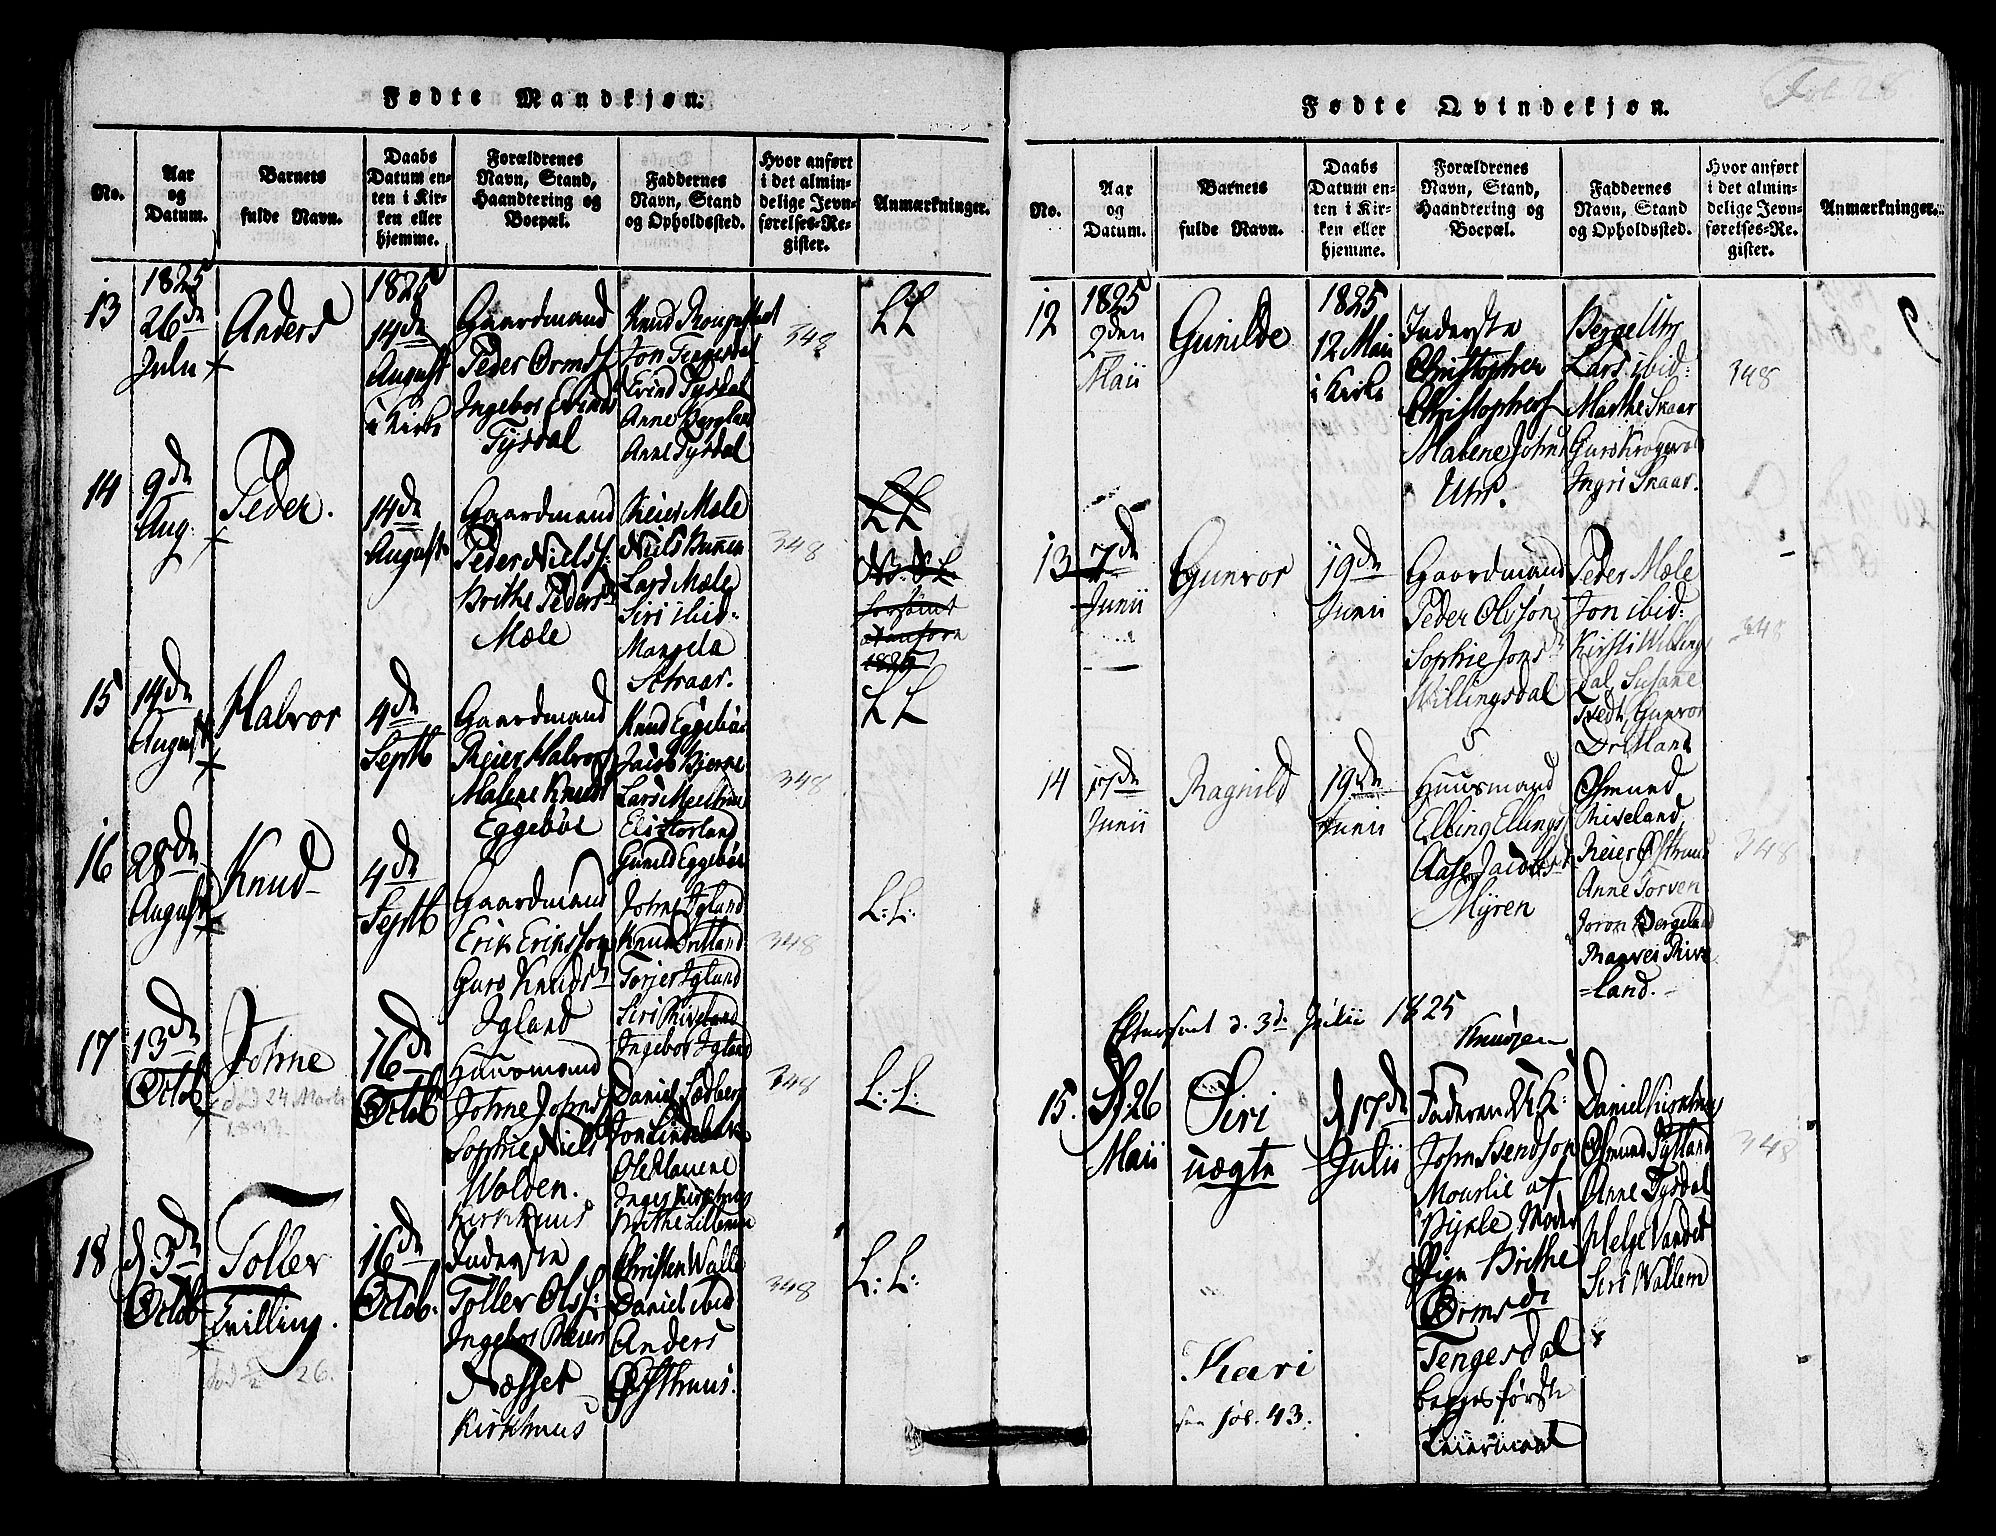 Fødte Mandkjøn.
No.
Aar
og
Datum.
Barnets
fulde Navn.
Daabs
Datum en-
ten i Kir-
ken eller
hjemme.
Forældrenes
Navn, Stand,
Haandtering og
Boepæl.
Faddernes
Navn, Stand
og Opholdssted.
Hvor anført
i det almin-
delige Jevn-
førelses-Re-
gister.
Anmærkninger.
13
1825
26de
Julii
Anders
1825
14de
August
i Kirke
Gaardmand
Peder Ormss
Ingebor Evinds
Tysdal
Jon Tengesdal
Evind Tysdal
Anne Bergland
Anne Tysdal
348
LL
14
9de
Aug.
Peder.
14de
August
Gaardmand
Peder Nielss
Brithe Pedersd
Mæle
Reier Mæle
Lars Mæle
Siri ibid:
Mangela
348
LL
1825
15
14de
August
Halvor
4de
Septb
Gaardmand
Reier Halvors
Malene Knuds
Eggebøe
Knud Eggebøe
Jacob Bjerne
Gunild Eggebøe
348
LL
16
28de
August
Knud
4de
Septb
Gaardmand
Erik Eriksson
Guro Knudsd
Igland
Johne Igland
Knud Dritland
Torjer Igland
Siri Riveland
Ingebor Igland
348
L: L:
17
13de
Octob
Johne
død 24 Marts
16de
Octob
Huusmand
Johne Johns
Sophie Niels
Wolden.
Kirkhuus
Daniel Sædberg
Jon Lindebek
Inger Kirkhuus
348
L: L:
18
d 3de
Octob
Toller
Tvilling.
død 1/2 26.
16de
Octob.
Inderste
Toller Olss:
Ingebor Reiers
Næsset
Kirkhuus
Christen Walle
Daniel ibid
Anders
Østhuus.
348
L: L:
Fødte Qvindekjøn.
Fol 28.
No.
Aar
og
Datum.
Barnets
fulde Navn.
Daabs
Datum en-
ten i Kir-
ken eller
hjemme.
Forældrenes
Navn, Stand,
Haandtering og
Boepæl.
Faddernes
Navn, Stand
og Opholdssted.
Hvor anført
i det almin-
delige Jevn-
førelses-Re-
gister.
Anmærkninger.
12
1825
2den
Maii
Gunilde
1825
12 Maii
i Kirke
Inderste
Christopher
Christophers
Malene Johns
Uhr.
Berge Uhr
Lars ibid:
Marthe Snaar
Ingri Snaar.
348
13
7de
Junii
Gunvor
19de
Junii
Gaardmand
Peder Olsson
Sophie Jons
Willingsdal
Peder Mæle
Jon ibid:
Kirsti Willings
dal Susane
Tvedt, Gunvor
Dritland
348
14
17de
Junii
Ragnild
19de
Junii
Huusmand
Elling Ellings
Aase Jacobs
Myren
Osmund
Riveland,
Reier Østhuus
Anne Torven
Joron Bergeland
Ranvei Rive
=land.
348
Eftersat d. 3de Julii 1825
Knudsen
15.
D. 26
Maii
Siri
uægte
d 17de
Julii
Faderen U. K:
John Svendson
Mourlie af
Bykle Moder
Pige Brithe
Ormsdr
Tengesdal
begges første
Leiermaal
Daniel Kirkhuus
Osmund Tytland
Anne Tysdal
Helge Vandet
Siri Wallem
348
Kari
see fol. 43.